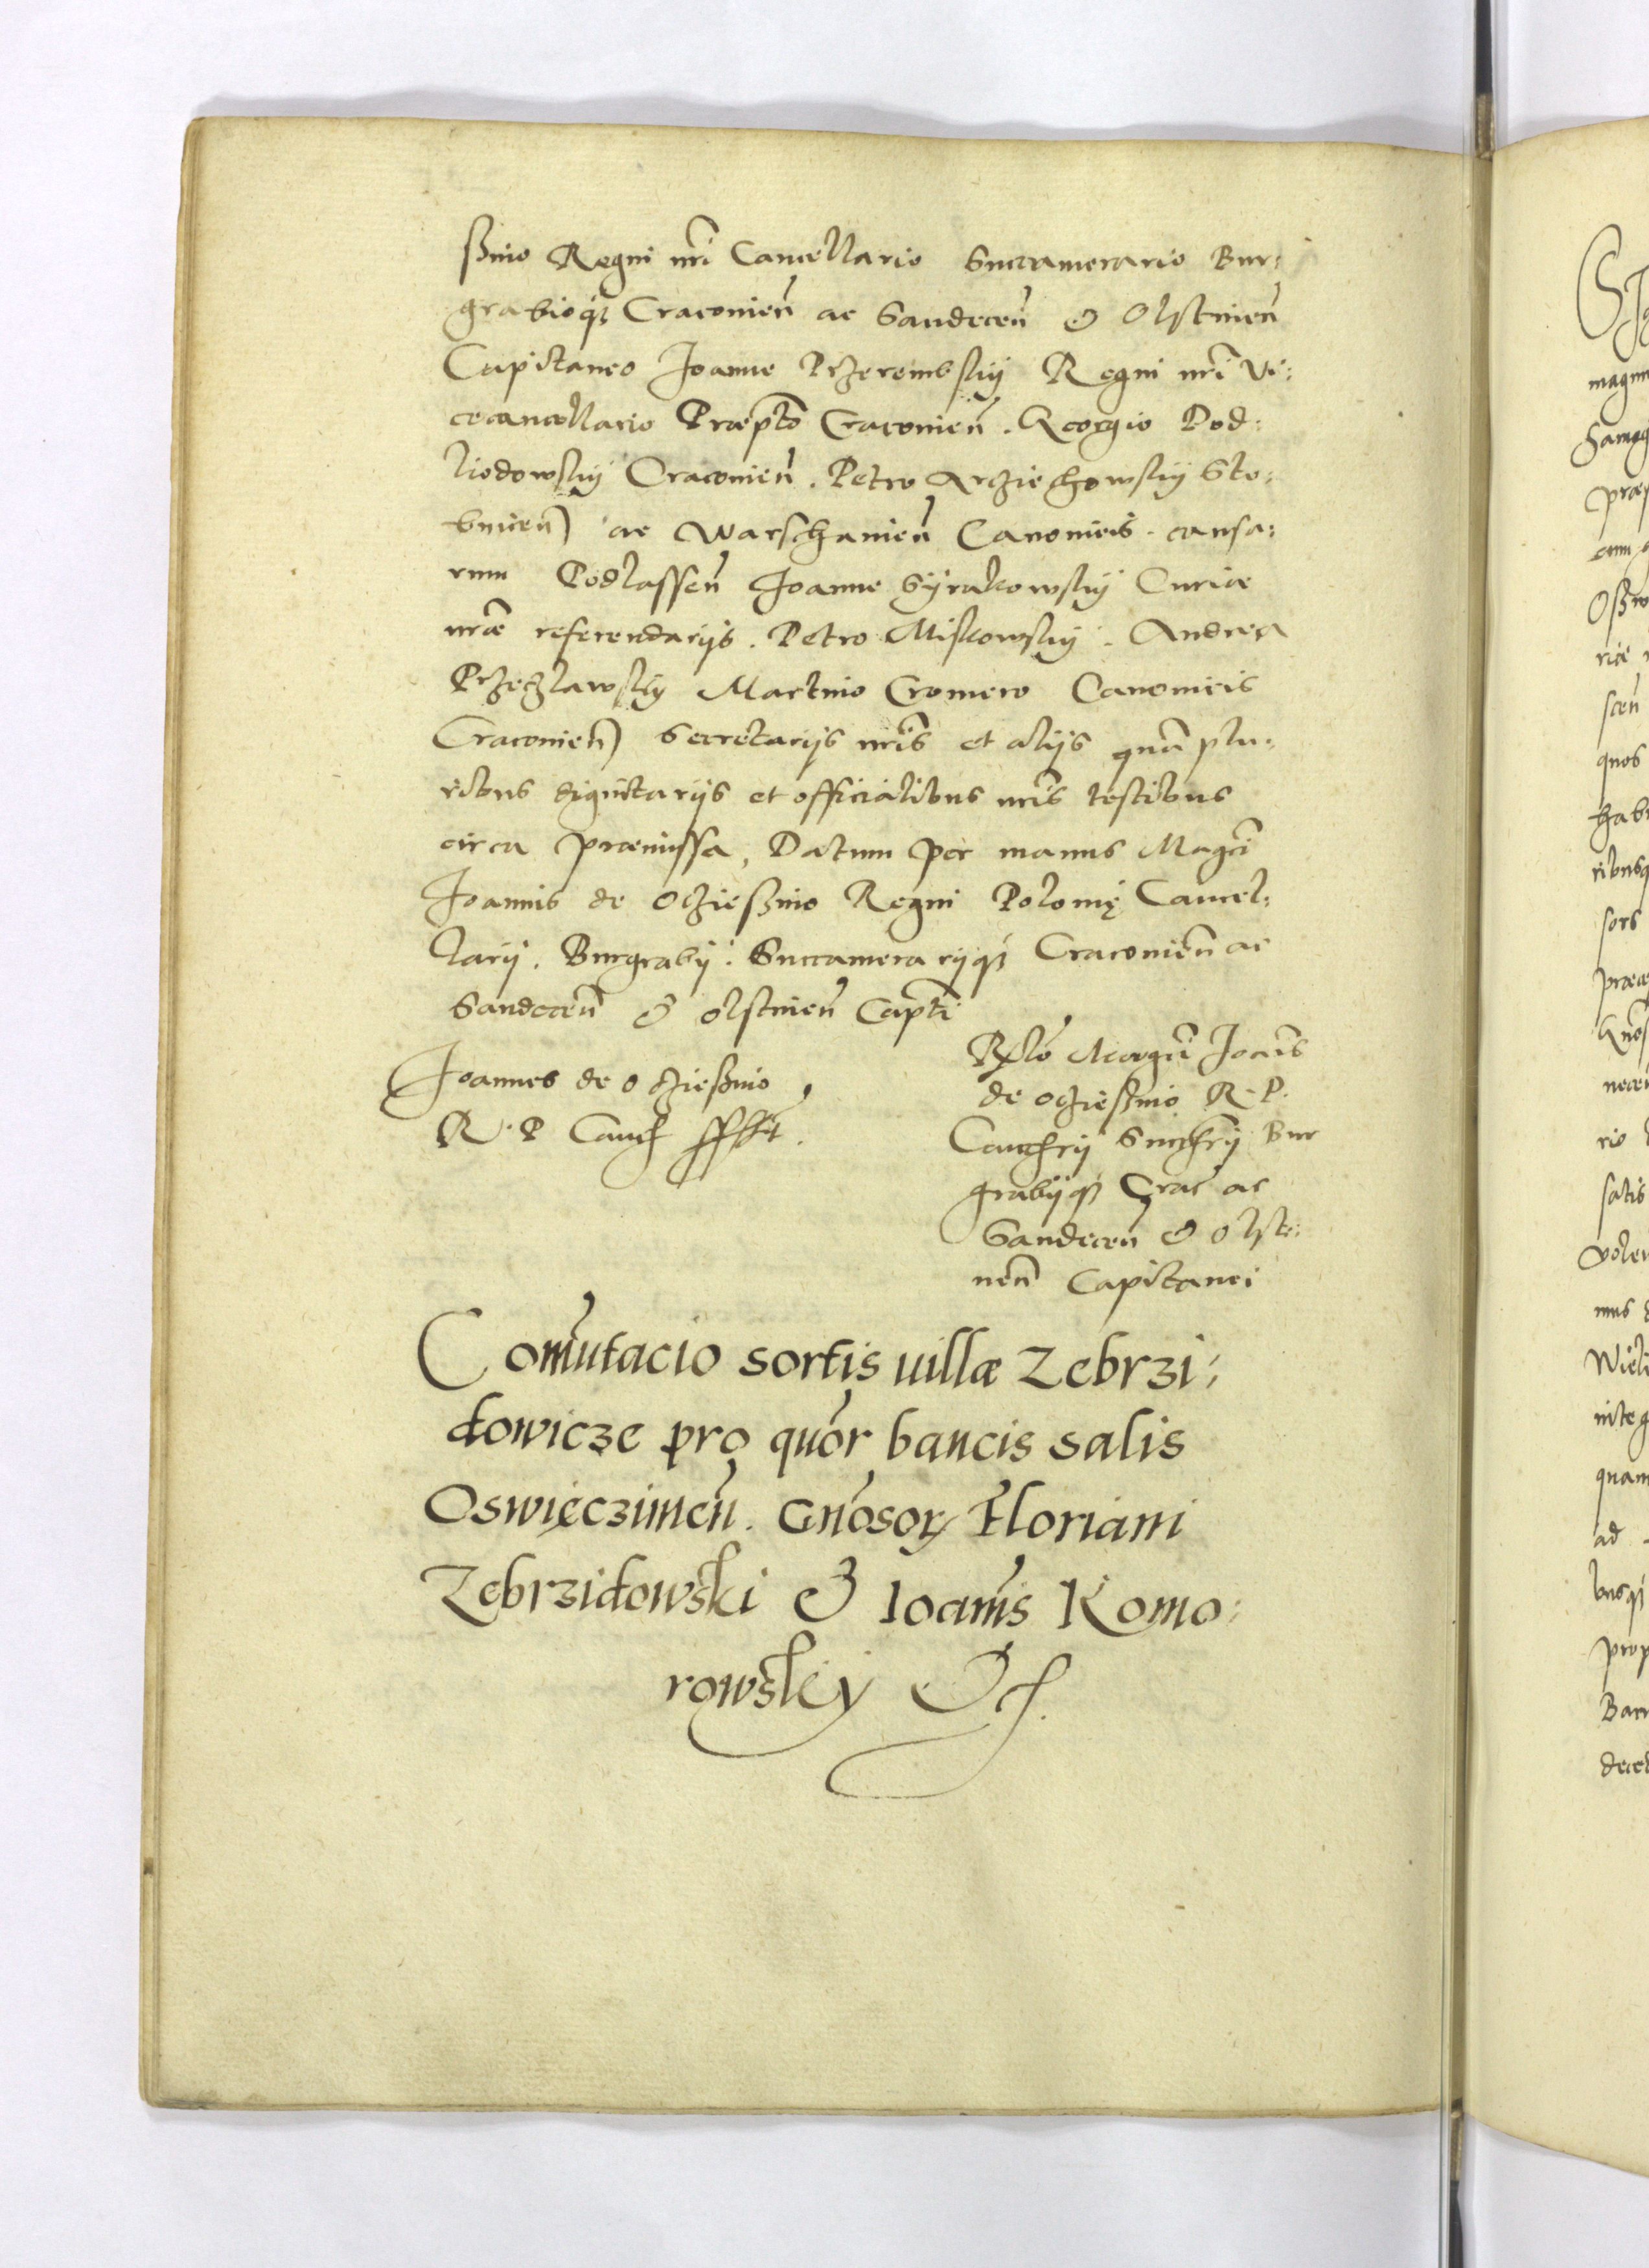 ßnio Regni nri Cancellario Succamerario Bur:
grabioq3 Craconien ac Sandecen & Olstinen
Capitaneo Joanne Przerembskij Regni nri Vi:
cecancellario Praepto Craconien. Georgio Pod:
liodowskij Craconien. Petro Arziechowskij Sto:
bnicen ac Warschauien Canonicis. causa:
rum Podlassen Joanne Syrakowskij Curiae
nrae referendarijs. Petro Miskowskij. Andrea
Przeczlawskij Martino Cromero Canonicis
Craconien Secretarijs nris et alijs quam plu:
ribus dignitarijs et officialibus nris testibus
circa praemissa, Datum per manus Magci
Joannis de Oczießnio Regni Polonię Cancel:
larij. Burgrabij. Succamerarijq3 Craconien ac
Sandecen & Olstinen Capti
Joannes de Oczießnio
R. P Canc sst.
Rlo Magci Joannis
de Oczießnio R. P.
Bur
grabijq3 Crac ac
Sandecen & Olste:
nen Capitanei
Comutacio sortis uillae Zebrzi:
dowicze pro quor bancis salis
Oswięczimen. Gnosor Floriani
Zebrzidowski & Ioanis Komo:
rowskij &c.
magni
praes
cum
riae
scen
quos
habe
sors
satis
mus
integ
quam
ad
prop